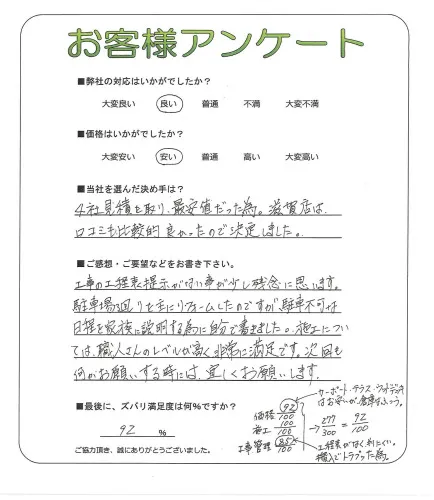 お客様アンケート
■弊社の対応はいかがでしたか?
大変良い 良い 普通 不満 大変不満
■価格はいかがでしたか?
大変安い 安い 普通 高い 大変高い
■当社を選んだ決め手は?
4社見積を取り、最安値だった為。滋賀店は、
口コミも比較的良かったので決定しました。
■ご感想・ご要望などをお書き下さい。
工事の工程表提示がない事が少し残念に思います。
駐車場廻りを主にリフォームしたのですが駐車不可な
日程を家族に説明する為に自分で書きました。施工につい
ては、職人さんのレベルが高く非常に満足です。次回も
何かお願いする時には、宜しくお願いします。
■最後に、ズバリ満足度は何%ですか?
92 %
ご協力頂き、誠にありがとうございました。
カーポート・テラス・ウッドデッキ
はお安いが、倉庫はふつう。
価格 92/100
施工 100/100
工事管理 85/100
→ 277/300 = 92/100
工程表がなく判りにくい。
搬入でトラブった為。